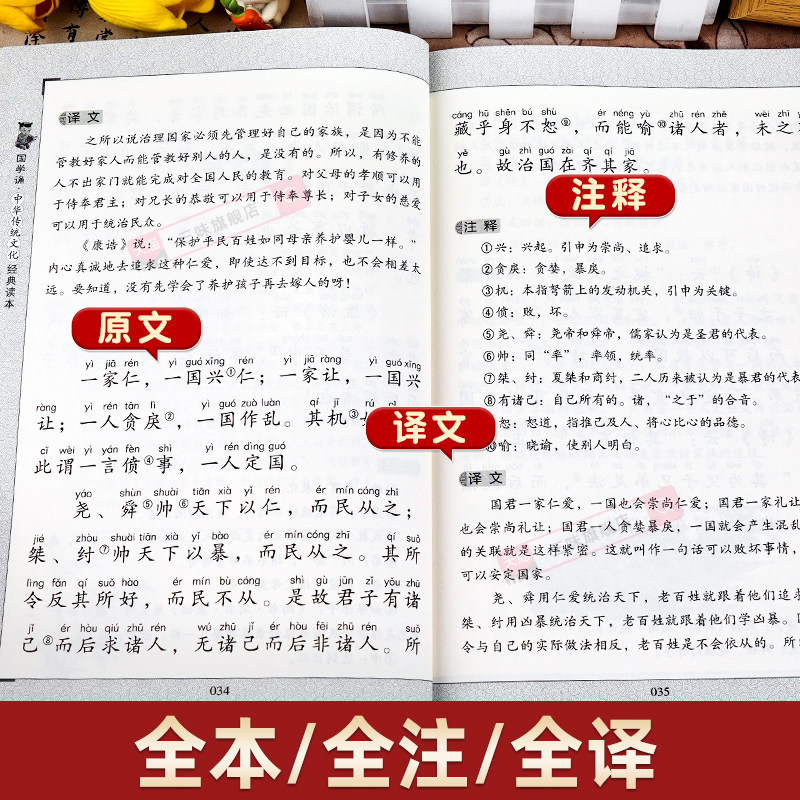 国学诵·中华传统文化经典读本
译文
之所以说治理国家必须先管理好自己的家族，是因为不能
管教好家人而能管教好别人的人，是没有的。所以，有修养的
人不出家门就能完成对全国人民的教育。对父母的孝顺可以用
于侍奉君主；对兄长的恭敬可以用于侍奉尊长；对子女的慈爱
可以用于统治民众。
《康诰》说：“保护平民百姓如同母亲养护婴儿一样。”
内心真诚地去追求这种仁爱，即使达不到目标，也不会相差太
远。要知道，没有先学会了养护孩子再去嫁人的呀！
原文
yì jiā rén yì guó xīng rén yì jiā ràng yì guó xīng
一家仁，一国兴①仁；一家让，一国兴
ràng yì rén tān lì yì guó zuò luàn qí jī rú cǐ
让；一人贪戾②，一国作乱。其机③
cǐ wèi yì yán fèn shì yì rén dìng guó
此谓一言偾④事，一人定国。
yáo shùn shuài tiān xià yǐ rén ér mín cóng zhī
尧、舜⑤帅⑥天下以仁，而民从之；
jié zhòu shuài tiān xià yǐ bào ér mín cóng zhī qí suǒ
桀、纣⑦帅天下以暴，而民从之。其所
lìng fǎn qí suǒ hào ér mín bù cóng shì gù jūn zǐ yǒu zhū
令反其所好，而民不从。是故君子有诸
jǐ ér hòu qiú zhū rén wú zhū jǐ ér hòu fēi zhū rén suǒ
己⑧而后求诸人，无诸己而后非诸人。所
034
cáng hū shēn bú shù ér néng yù zhū rén zhě wèi zhī
藏乎身不恕⑨，而能喻⑩诸人者，未之
yě gù zhì guó zài qí qí jiā
也。故治国在齐其家。
注释
注释
①兴：兴起。引申为崇尚、追求。
②贪戾：贪婪，暴戾。
③机：本指弩箭上的发动机关，引申为关键。
④偾：败，坏。
⑤尧、舜：尧帝和舜帝，儒家认为是圣君的代表。
⑥帅：同“率”，率领，统率。
⑦桀、纣：夏桀和商纣，二人历来被认为是暴君的代表
⑧有诸己：自己所有的。诸，“之于”的合音。
恕：恕道，指推己及人、将心比心的品德。
⑩喻：晓谕，使别人明白。
译文
译文
国君一家仁爱，一国也会崇尚仁爱；国君一家礼让
也会崇尚礼让；国君一人贪婪暴戾，一国就会产生混乱
的关联就是这样紧密。这就叫作一句话可以败坏事情，
可以安定国家。
尧、舜用仁爱统治天下，老百姓就跟着他们追求
桀、纣用凶暴统治天下，老百姓就跟着他们学凶暴。
令与自己的实际做法相反，老百姓是不会依从的。所
035
三味旗舰店
三味旗舰店
全本/全注/全译